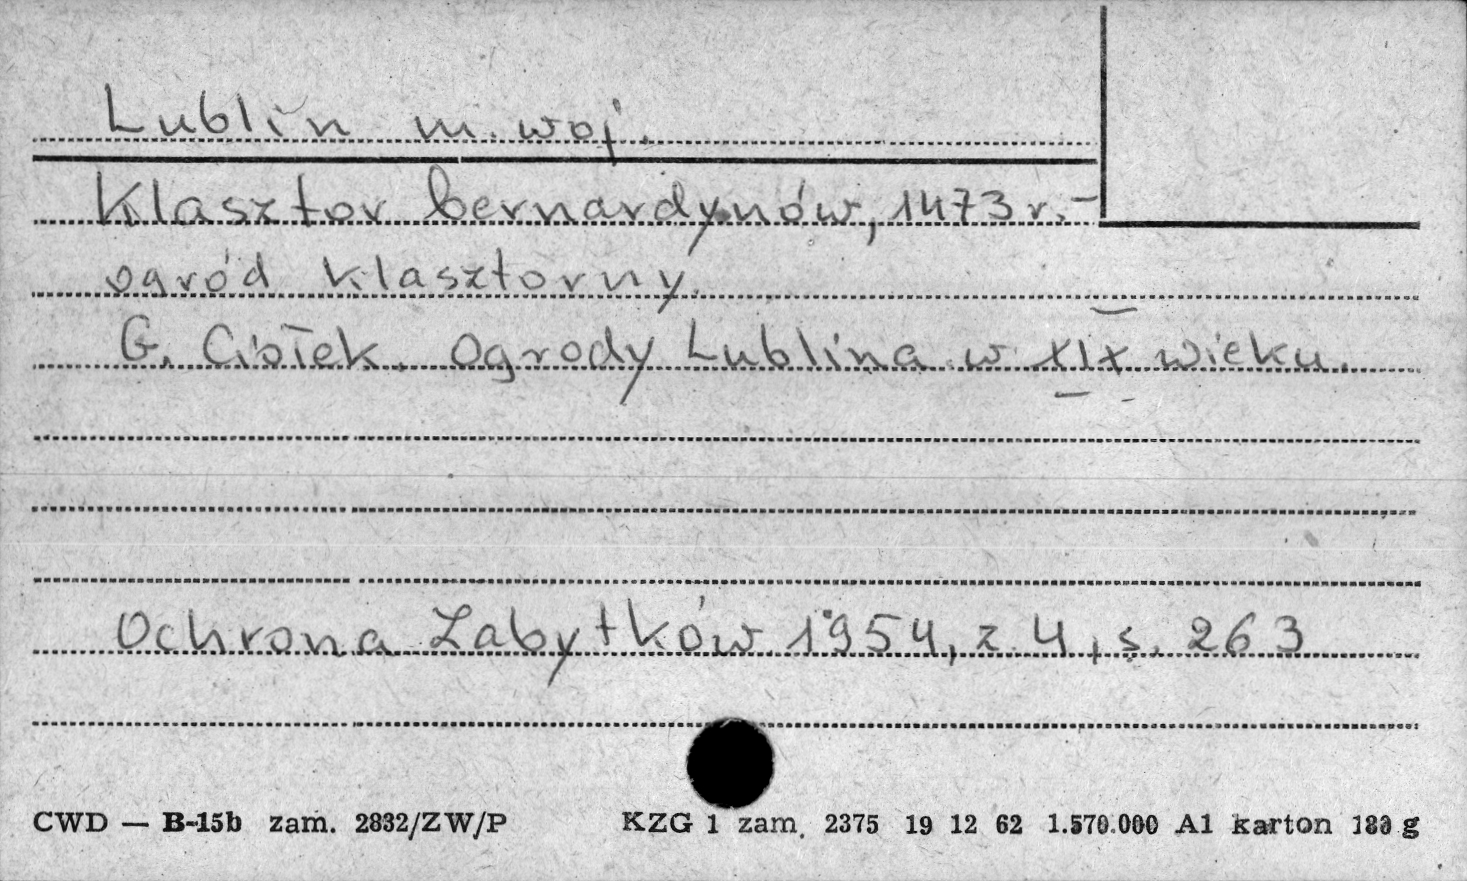 Lublin m. woj.
Klasztor bernardynów, 1473 r. –
ogród klasztorny.
G. Ciołek. Ogrody Lublina w XIX wieku.
Ochrona Zabytków 1954, z. 4, s. 263
CWD — B-15b zam. 2832/ZW/P KZG 1 zam. 2375 19 12 62 1.570.000 A1 karton 180 g